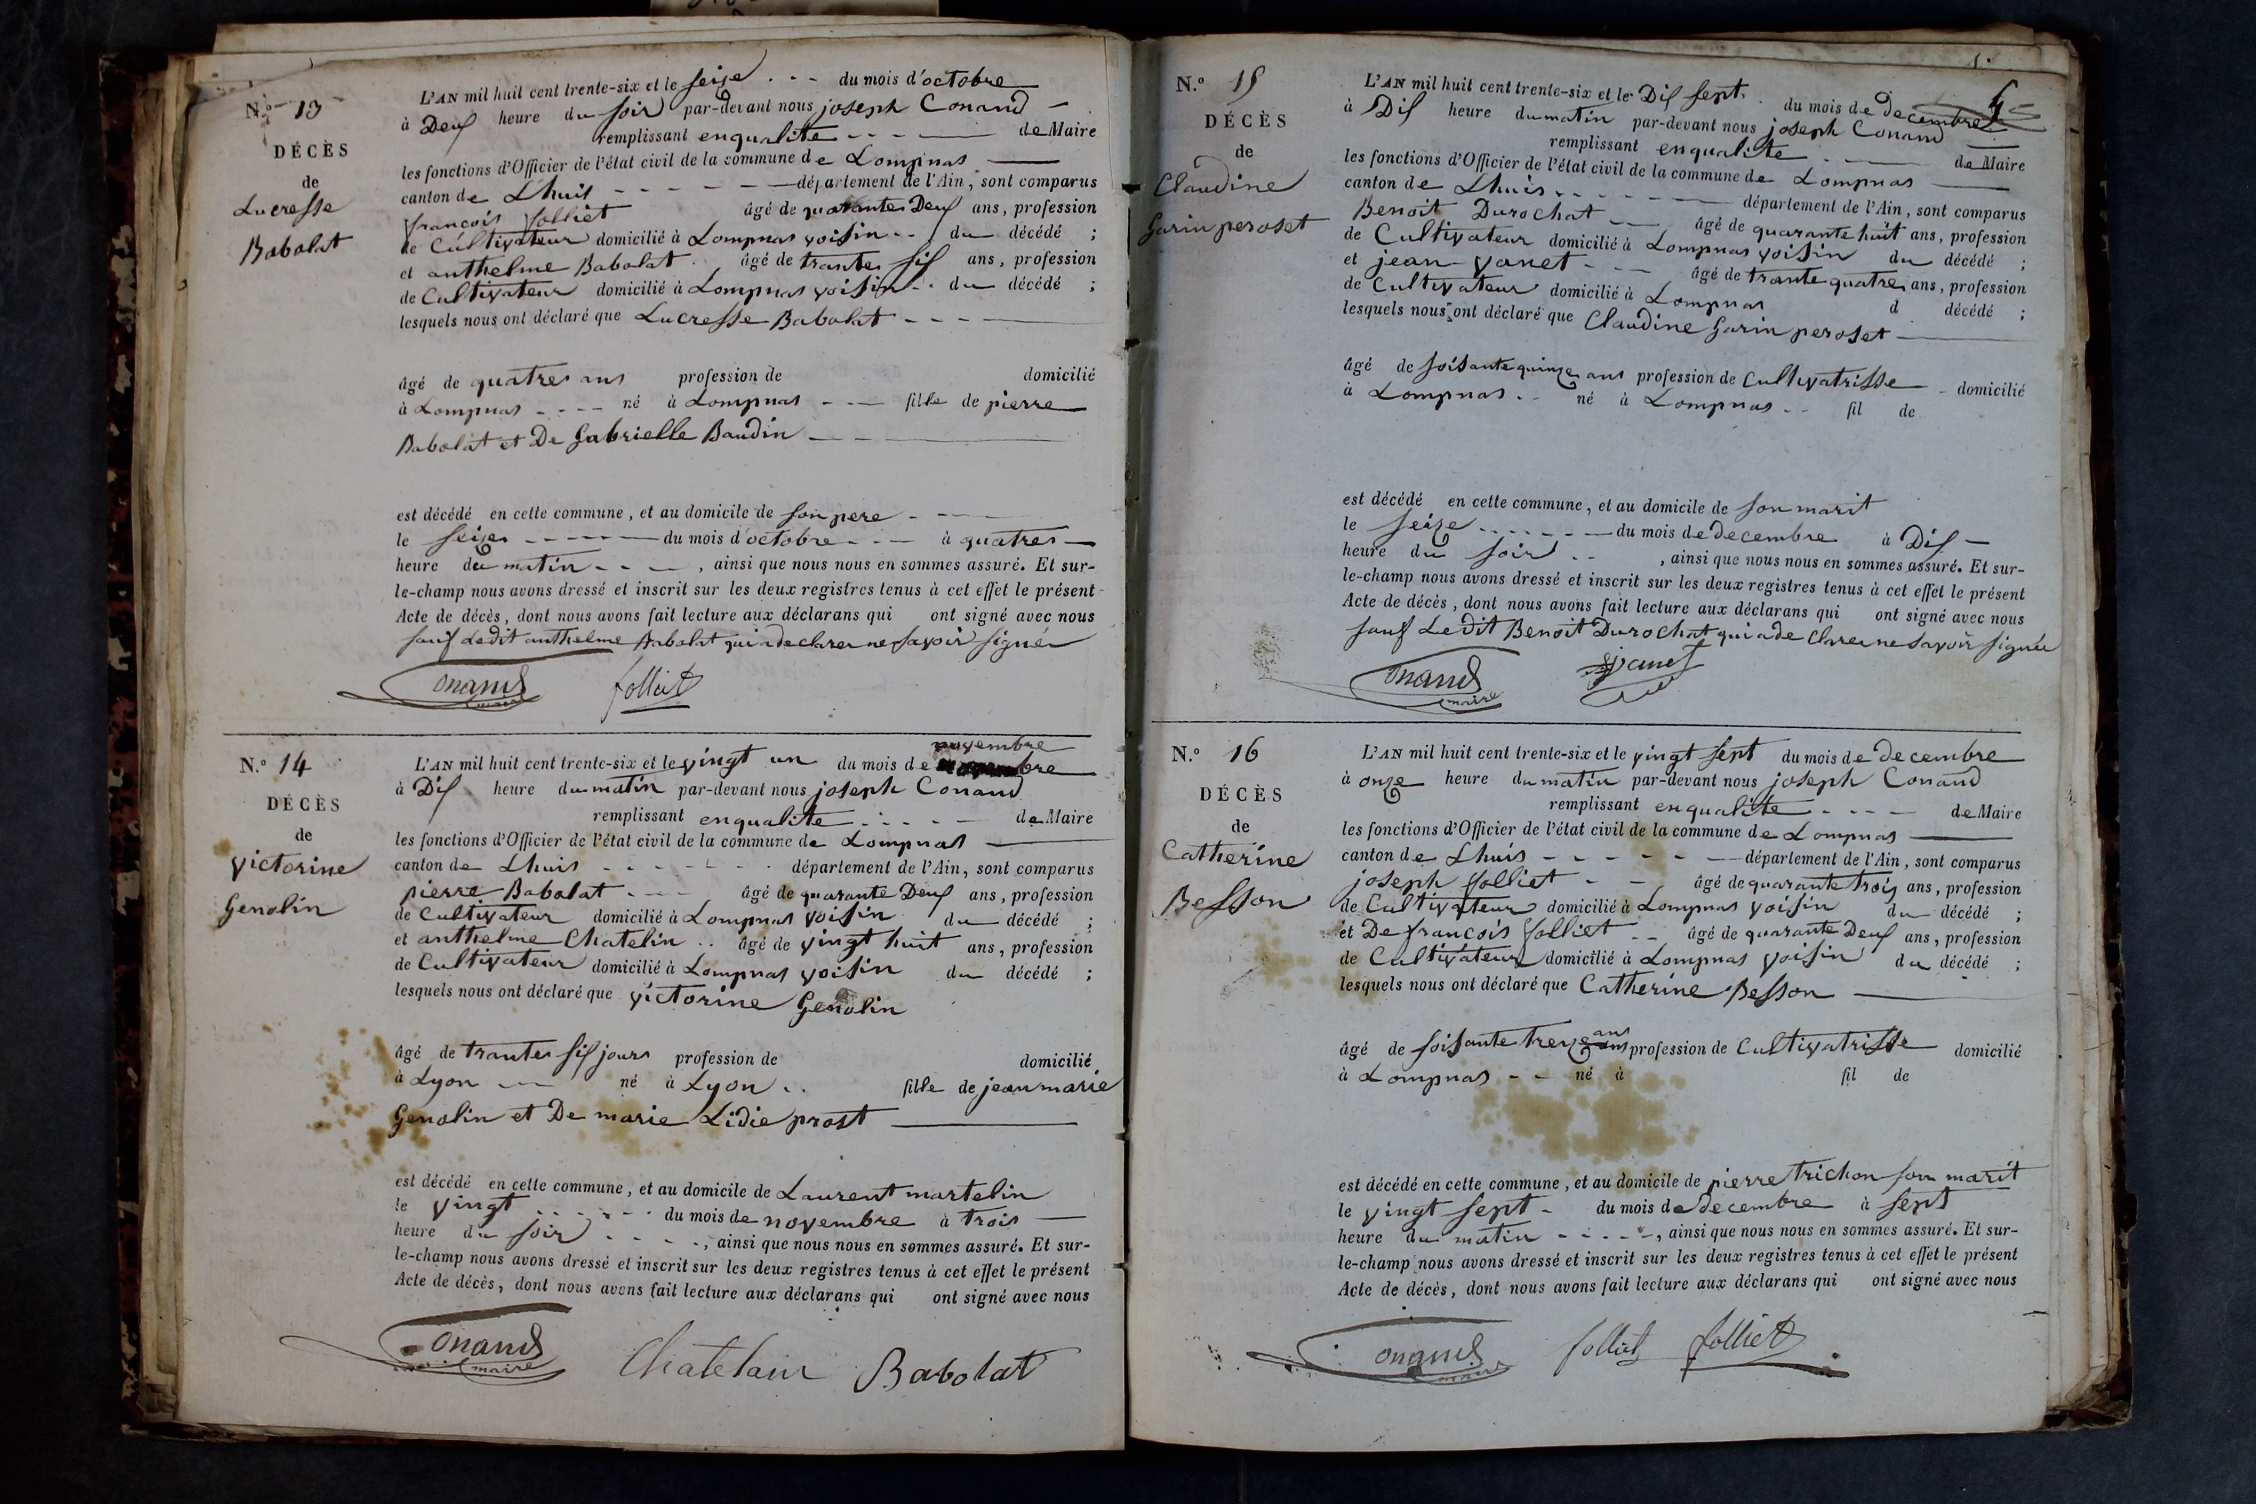 N.º 13
DÉCÈS
de
Lucresse
Babolat
L'AN mil huit cent trente-six et le seize du mois d'octobre
à Deux heure du soir par-devant nous joseph Conand
remplissant enqualite de Maire
les fonctions d'Officier de l'état civil de la commune de Lompnas
canton de Lhuis département de l'Ain, sont comparus
francois folliet âgé de quarante Deux ans, profession
de Cultivateur domicilié à Lompnas voisin du décédé ;
et anthelme Babolat âgé de trantes six ans, profession
de Cultivateur domicilié à Lompnas voisin du décédé ;
lesquels nous ont déclaré que Lucresse Babolat
âgé de quatres ans profession de domicilié
à Lompnas né à Lompnas fille de pierre
Babolat et De Gabrielle Baudin
est décédé en cette commune, et au domicile de son pere
le seizes du mois d'octobre à quatres
heure du matin, ainsi que nous nous en sommes assuré. Et sur-
le-champ nous avons dressé et inscrit sur les deux registres tenus à cet effet le présent
Acte de décès, dont nous avons fait lecture aux déclarans qui ont signé avec nous
sauf Ledit anthelme Babolat qui a declarer ne savoir signér
Conand maire folliet
N.º 14
DÉCÈS
de
victorine
Genolin
novembre
L'AN mil huit cent trente-six et le vingt un du mois de
à Dix heure du matin par-devant nous joseph Conand
remplissant enqualite de Maire
les fonctions d'Officier de l'état civil de la commune de Lompnas
canton de Lhuis département de l'Ain, sont comparus
pierre Babolat âgé de quarante Deux ans, profession
de Cultivateur domicilié à Lompnas voisin du décédé ;
et anthelme Chatelin âgé de vingt huit ans, profession
de Cultivateur domicilié à Lompnas voisin du décédé ;
lesquels nous ont déclaré que victorine Genolin
âgé de trantes six jours profession de domicilié
à Lyon né à Lyon fille de jeanmarie
Genolin et De marie Lidie prost
est décédé en cette commune, et au domicile de Laurent martelin
le vingt du mois de novembre à trois
heure du soir, ainsi que nous nous en sommes assuré. Et sur-
le-champ nous avons dressé et inscrit sur les deux registres tenus à cet effet le présent
Acte de décès, dont nous avons fait lecture aux déclarans qui ont signé avec nous
Conand maire Chatelain Babolat
N.º 15
DÉCÈS
de
Claudine
Garin peroset
L'AN mil huit cent trente-six et le Dix sept du mois de decembre
à Dix heure du matin par-devant nous joseph Conand
remplissant enqualite de Maire
les fonctions d'Officier de l'état civil de la commune de Lompnas
canton de Lhuis département de l'Ain, sont comparus
Benoit Durochat âgé de quarante huit ans, profession
de Cultivateur domicilié à Lompnas voisin du décédé ;
et jean vanet âgé de trante quatres ans, profession
de Cultivateur domicilié à Lompnas d décédé ;
lesquels nous ont déclaré que Claudine Garin peroset
âgé de soisante quinze ans profession de Cultivatrisse domicilié
à Lompnas né à Lompnas fil de
est décédé en cette commune, et au domicile de son marit
le seize du mois de decembre à Dix
heure du soir, ainsi que nous nous en sommes assuré. Et sur-
le-champ nous avons dressé et inscrit sur les deux registres tenus à cet effet le présent
Acte de décès, dont nous avons fait lecture aux déclarans qui ont signé avec nous
sauf Ledit Benoit Durochat qui a de clarer ne savoir signér
Conand maire
N.º 16
DÉCÈS
de
Catherine
Besson
L'AN mil huit cent trente-six et le vingt sept du mois de decembre
à onze heure du matin par-devant nous joseph Conand
remplissant enqualite de Maire
les fonctions d'Officier de l'état civil de la commune de Lompnas
canton de Lhuis département de l'Ain, sont comparus
joseph folliet âgé de quarante trois ans, profession
de Cultivateur domicilié à Lompnas voisin du décédé ;
et De francois folliet âgé de quarante Deux ans, profession
de Cultivateur domicilié à Lompnas voisin du décédé ;
lesquels nous ont déclaré que Catherine Besson
âgé de soisante treize ans profession de Cultivatrisse domicilié
à Lompnas né à fil de
est décédé en cette commune, et au domicile de pierre trichon son marit
le vingt sept du mois de decembre à sept
heure du matin, ainsi que nous nous en sommes assuré. Et sur-
le-champ nous avons dressé et inscrit sur les deux registres tenus à cet effet le présent
Acte de décès, dont nous avons fait lecture aux déclarans qui ont signé avec nous
Conand maire folliet folliet